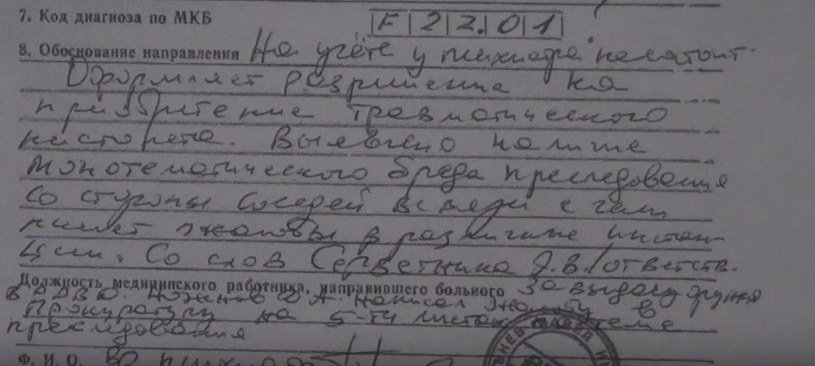 7. Код диагноза по МКБ |F|2|2.|0|1|
8. Обоснование направления На учёте у психиатра не состоит.
Оформляет разрешение на
приобретение травматического
пистолета. Выявлено наличие
монотематического бреда преследования
со стороны соседей в связи с чем
пишет жалобы в различные инстан-
ции. Со слов Серветника Э.В./ответств.
Должность медицинского работника, направившего больного за выдачу оружия
в написал жалобу в
прокуратуру на 5-ти листах
преследования
Ф. И. О.